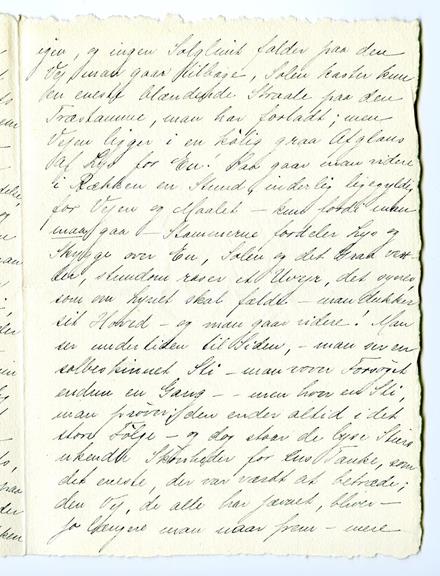 igen, og ingen Solglimt falder paa den
Vej man gaar tilbage, Solen kaster kun
en eneste blændende Straale paa den
Træstamme, man har forladt; men
Vejen ligger i en kølig graa Afglans
af Lys for En! Saa gaar man videre
i Rækken en Stund, inderlig ligegyldig
for Vejen og Maalet – kun fordi man
maa gaa – Stammerne fordeler Lys og
Skygge over En, Solen og det Graa
stundom raser et Uvejr, det synes,
som om skal falde – man dukker
sit Hoved – og man gaar videre! Man
ser undertiden til Siden, – man ser en
solbeskinnet Sti – man vover Forsøget
endnu en Gang – – men hver en Sti,
man prøver, den ender altid i det
store Følge – og dog staar de lyse Stiers
ukendte Skønheder for Ens Tanke, som
det eneste, der var værdt at betræde;
den Vej, de alle har jævnet, bliver –
jo længere man naar frem – mere